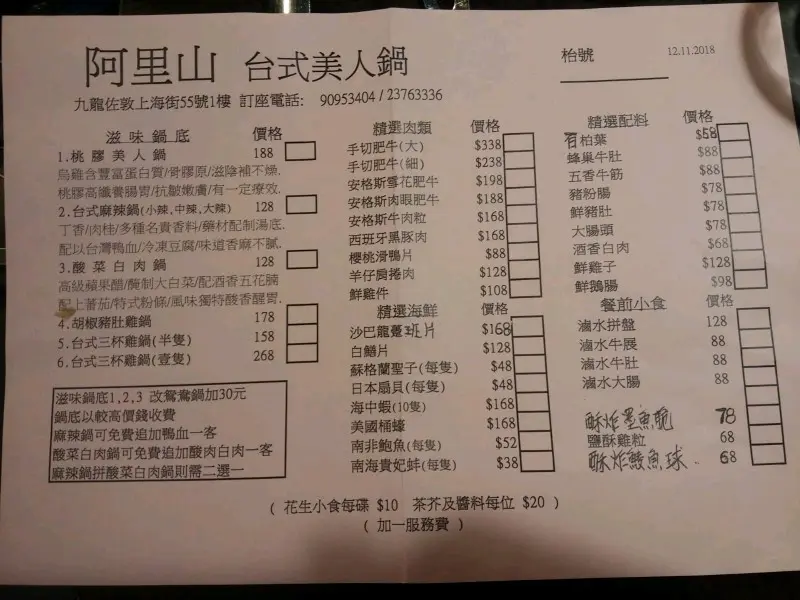 阿里山 台式美人鍋
枱號
12.11.2018
九龍佐敦上海街55號1樓 訂座電話: 90953404 / 23763336
滋味鍋底 價格
1.桃膠美人鍋 188
烏雞含豐富蛋白質/骨膠原/滋陰補不燥.
桃膠高纖養腸胃/抗皺嫩膚/有一定療效.
2.台式麻辣鍋(小辣,中辣,大辣) 128
丁香/肉桂/多種名貴香料/藥材配制湯底.
配以台灣鴨血/冷凍豆腐/味道香麻不膩.
3.酸菜白肉鍋 128
高級蘋果醋/醃制大白菜/配酒香五花腩
配上蕃茄/特式粉條/風味獨特酸香醒胃.
4.胡椒豬肚雞鍋 178
5.台式三杯雞鍋(半隻) 158
6.台式三杯雞鍋(壹隻) 268
滋味鍋底1,2,3 改鴛鴦鍋加30元
鍋底以較高價錢收費
麻辣鍋可免費追加鴨血一客
酸菜白肉鍋可免費追加酸肉白肉一客
麻辣鍋拼酸菜白肉鍋則需二選一
精選肉類 價格
手切肥牛(大) $338
手切肥牛(細) $238
安格斯雪花肥牛 $198
安格斯肉眼肥牛 $188
安格斯牛肉粒 $168
西班牙黑豚肉 $168
櫻桃滑鴨片 $88
羊仔肩捲肉 $128
鮮雞件 $108
精選海鮮 價格
沙巴龍躉班片 $168
白鱔片 $128
蘇格蘭聖子(每隻) $48
日本扇貝(每隻) $48
海中蝦(10隻) $168
美國桶蠔 $168
南非鮑魚(每隻) $52
南海貴妃蚌(每隻) $38
精選配料 價格
柏葉 $58
蜂巢牛肚 $88
五香牛筋 $88
豬粉腸 $78
鮮豬肚 $78
大腸頭 $78
酒香白肉 $68
鮮雞子 $128
鮮鵝腸 $98
餐前小食 價格
滷水拼盤 128
滷水牛展 88
滷水牛肚 88
滷水大腸 88
酥炸墨魚 78
鹽酥雞粒 68
酥炸鯪魚球 68
( 花生小食每碟 $10 茶芥及醬料每位 $20 )
( 加一服務費 )